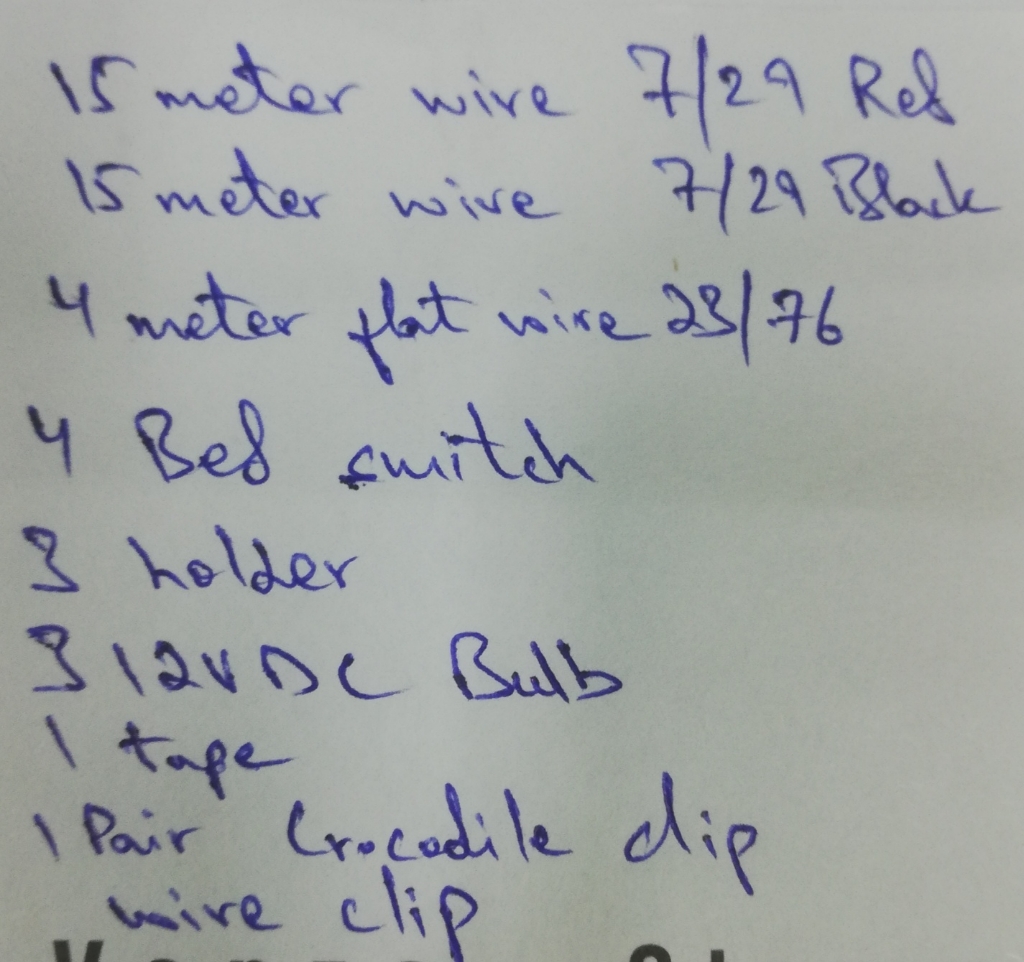 15 meter wire 7/29 Red
15 meter wire 7/29 Black
4 meter flat wire 23/76
4 Bed switch
3 holder
3 12V DC Bulb
1 tape
1 Pair Crocodile clip
wire clip